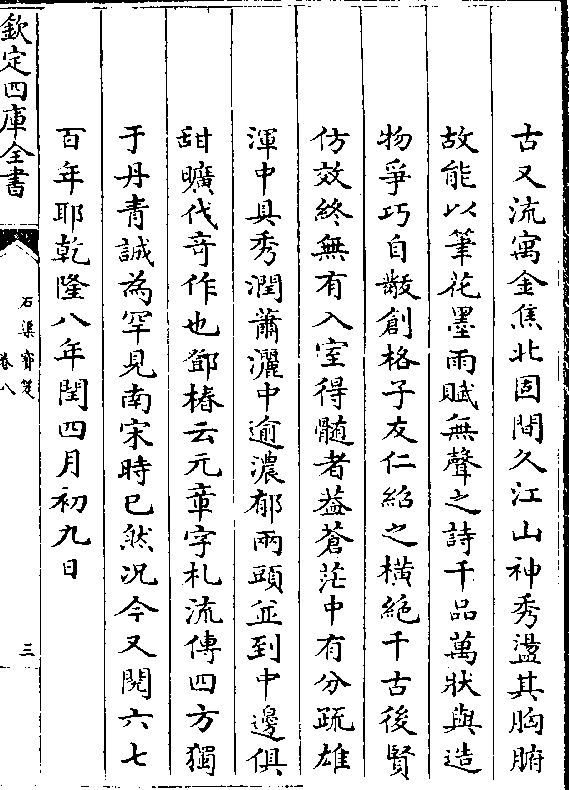 古又流寓金焦北固間久江山神秀盪其胸腑
故能以筆花墨雨賦無聲之詩千品萬狀與造
物爭巧自敽創格子友仁紹之橫絶千古後賢
仿效終無有入室得髓者葢蒼茫中有分疏雄
渾中具秀潤蕭灑中逾濃郁兩頭並到中邊俱
甜曠代竒作也鄧椿云元章字札流傳四方獨
于丹青誠為罕見南宋時已然況今又閱六七
百年耶乾隆八年閏四月初九日
欽定四庫全書
石渠寳笈
卷八
三